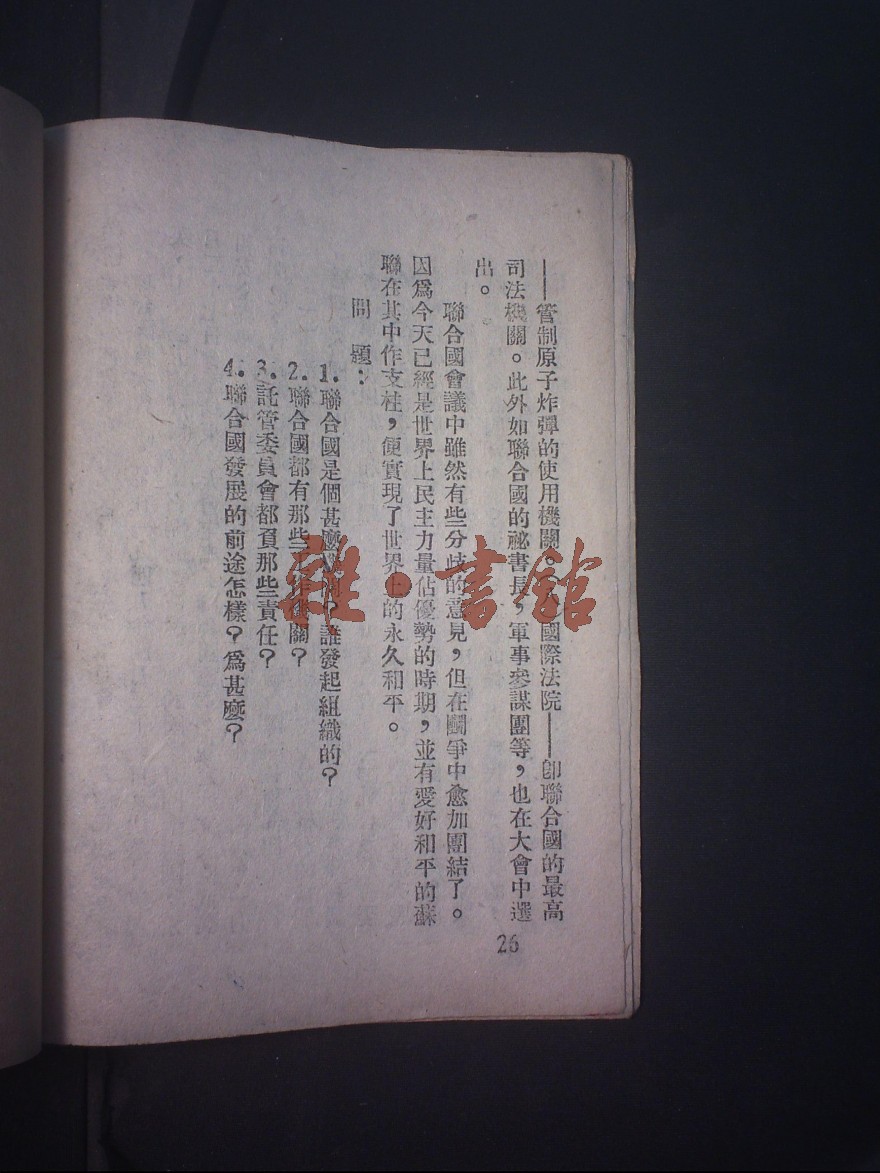 ——管制原子炸彈的使用機關。 國際法院——卽聯合國的最高
司法機關。此外如聯合國的祕書長，軍事參謀團等，也在大會中選
出。
聯合國會議中雖然有些分歧的意見，但在鬭爭中愈加團結了。
因爲今天已經是世界上民主力量佔優勢的時期，並有愛好和平的蘇
聯在其中作支柱，便實現了世界上的永久和平。
問題：
1.聯合國是個甚麼 ？誰發起組織的？
2.聯合國都有那些工作機關？
3.託管委員會都負那些責任？
4.聯合國發展的前途怎樣？爲甚麼？
26
雜·書館